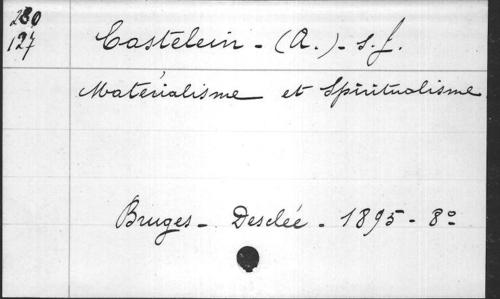 280
127
Castelein - (A.) - s.j.
Matérialisme et Spiritualisme
Bruges - Desclée - 1895 - 8º